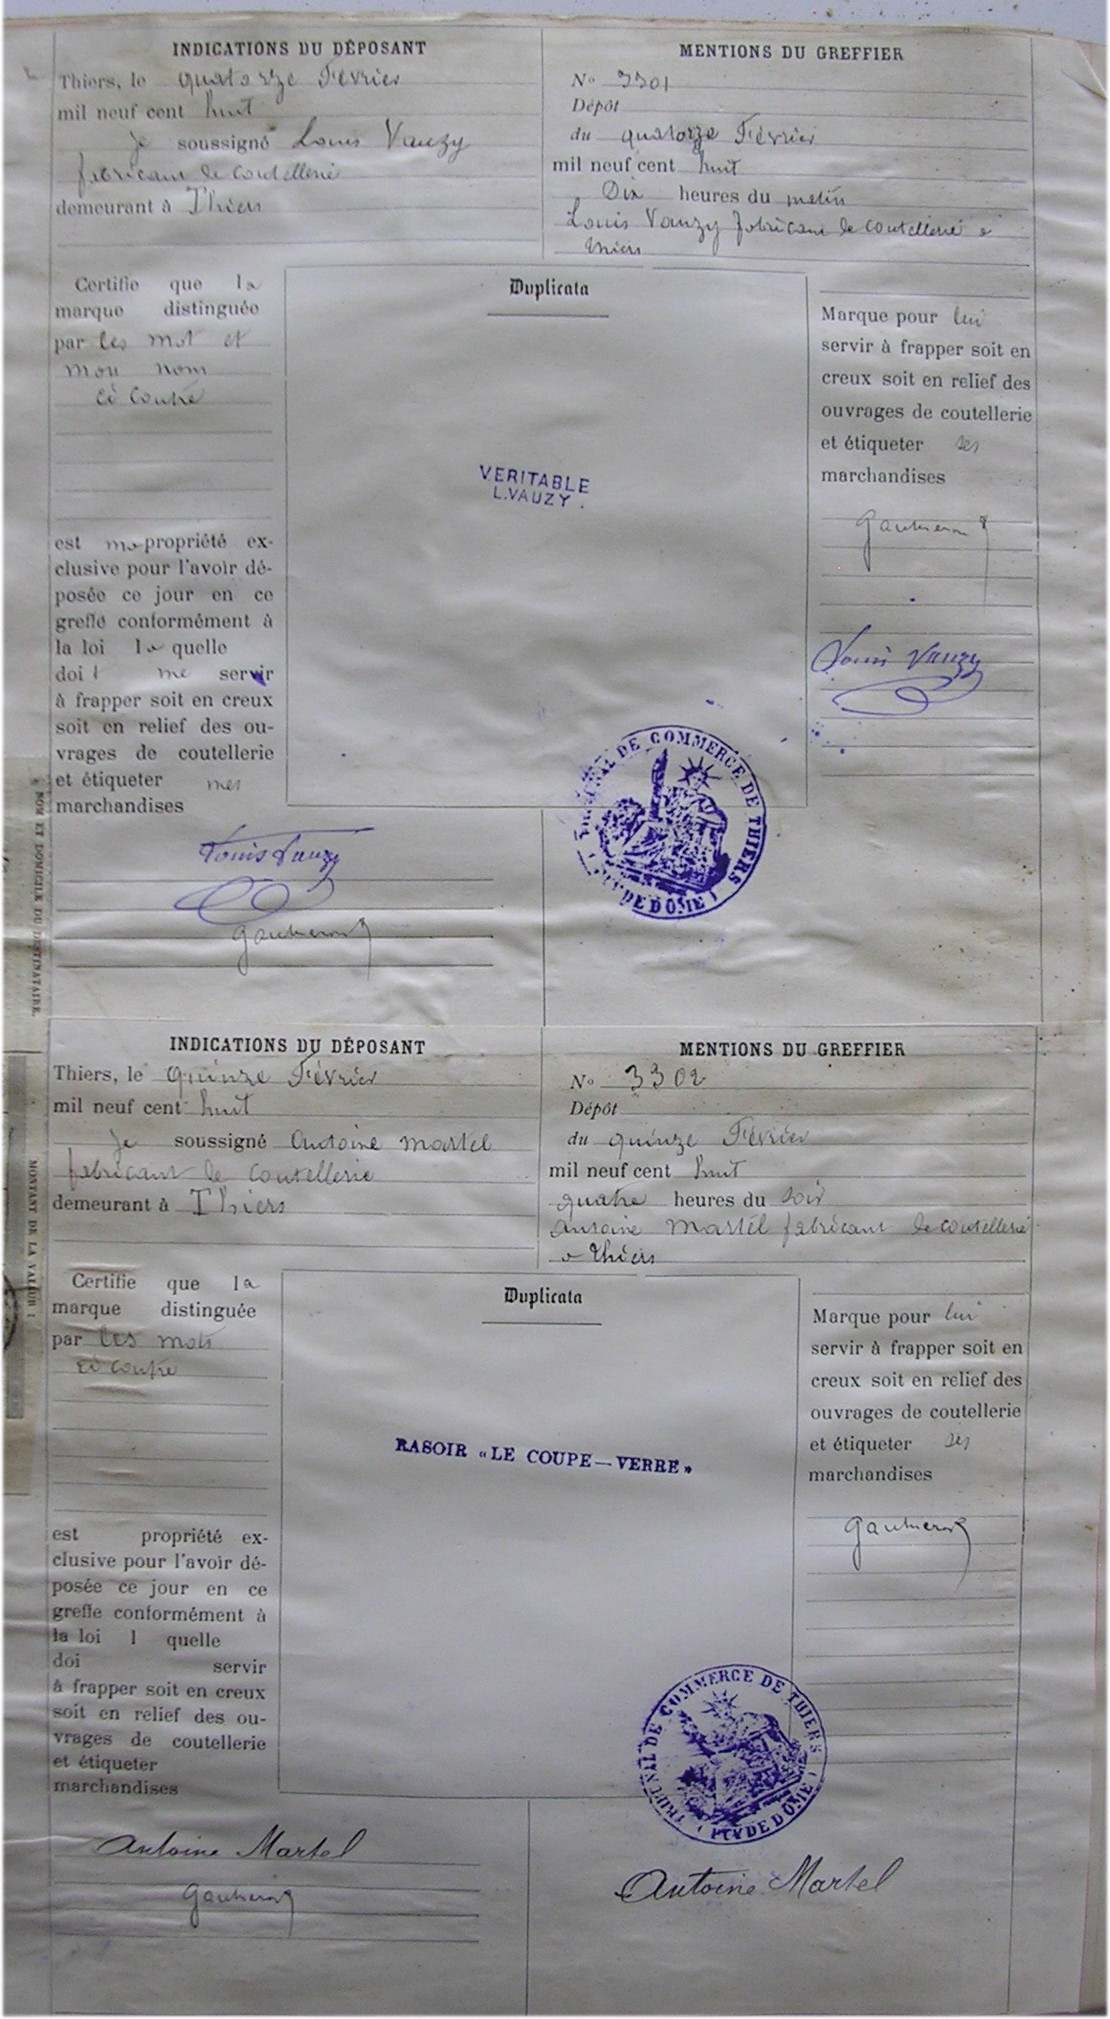 INDICATIONS DU DÉPOSANT
Thiers, le quatorze Février
mil neuf cent huit
je soussigné Louis Vauzy
fabricant de coutellerie
demeurant à Thiers
MENTIONS DU GREFFIER
N° 3301
Dépôt
du quatorze Février
mil neuf cent huit
Dix heures du matin
Louis Vauzy fabricant de coutellerie à
Thiers
Certifie que la
marque distinguée
par les mot et
mon nom
ci contre
est ma propriété ex-
clusive pour l'avoir dé-
posée ce jour en ce
greffe conformément à
la loi la quelle
doit me servir
à frapper soit en creux
soit en relief des ou-
vrages de coutellerie
et étiqueter mes
marchandises
Duplicata
VERITABLE
L.VAUZY.
Marque pour lui
servir à frapper soit en
creux soit en relief des
ouvrages de coutellerie
et étiqueter ses
marchandises
Gautheron
Louis Vauzy
TRIBUNAL DE COMMERCE DE THIERS
(PUY DE DOME)
Louis Vauzy
Gautheron
NOM ET DOMICILE DU DESTINATAIRE.
INDICATIONS DU DÉPOSANT
Thiers, le quinze Février
mil neuf cent huit
je soussigné Antoine Martel
fabricant de coutellerie
demeurant à Thiers
MENTIONS DU GREFFIER
N° 3302
Dépôt
du quinze Février
mil neuf cent huit
quatre heures du soir
Antoine Martel fabricant de coutellerie
à Thiers
MONTANT DE LA VALEUR
Certifie que la
marque distinguée
par les mots
ci contre
est propriété ex-
clusive pour l'avoir dé-
posée ce jour en ce
greffe conformément à
la loi l quelle
doi servir
à frapper soit en creux
soit en relief des ou-
vrages de coutellerie
et étiqueter
marchandises
Duplicata
RASOIR «LE COUPE—VERRE»
Marque pour lui
servir à frapper soit en
creux soit en relief des
ouvrages de coutellerie
et étiqueter ses
marchandises
Gautheron
TRIBUNAL DE COMMERCE DE THIERS
(PUY DE DOME)
Antoine Martel
Gautheron
Antoine Martel